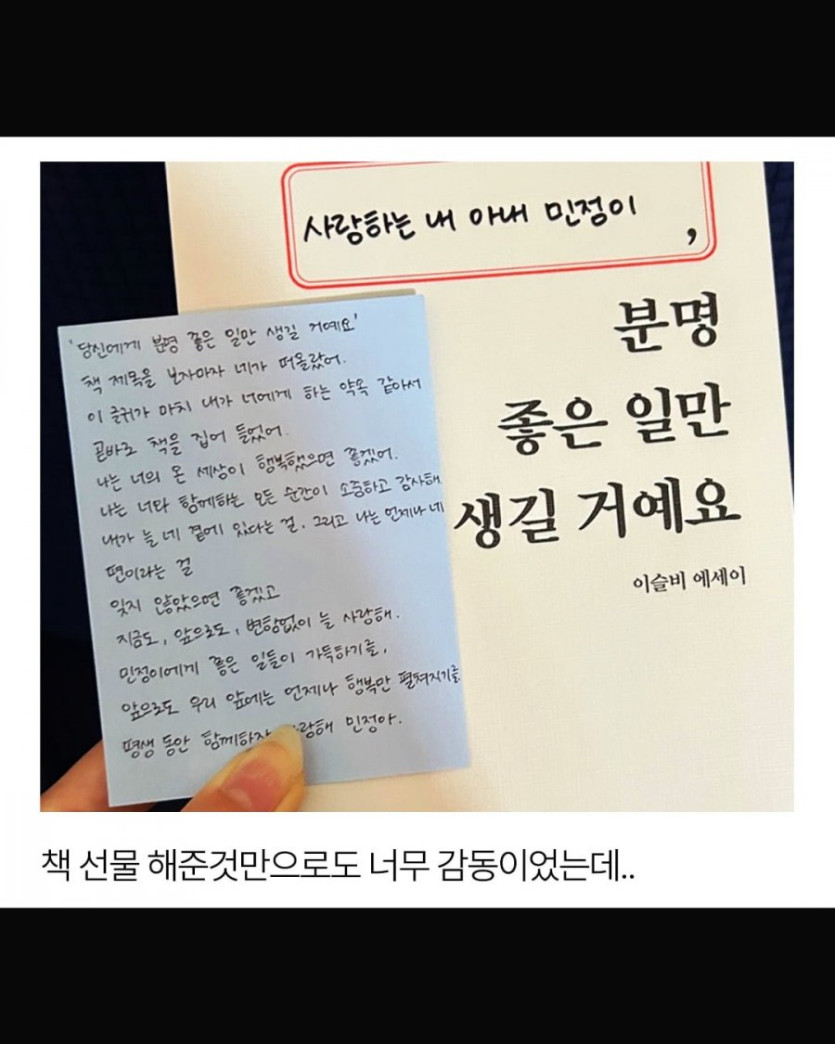 사랑하는 내 아내 민정이,
분명
좋은 일만
생길 거예요
이슬비 에세이
'당신에게 분명 좋은 일만 생길 거예요'
책 제목을 보자마자 네가 떠올랐어.
이 글귀가 마치 내가 너에게 하는 약속 같아서
곧바로 책을 집어 들었어.
나는 너의 온 세상이 행복했으면 좋겠어.
나는 너와 함께하는 모든 순간이 소중하고 감사해
내가 늘 네 곁에 있다는 걸, 그리고 나는 언제나 네
편이라는 걸
잊지 않았으면 좋겠고
지금도, 앞으로도, 변함없이 늘 사랑해.
민정이에게 좋은 일들이 가득하기를,
앞으로도 우리 앞에는 언제나 행복만 펼쳐지기를
평생 동안 함께하자 민정아.
책 선물 해준것만으로도 너무 감동이었는데..